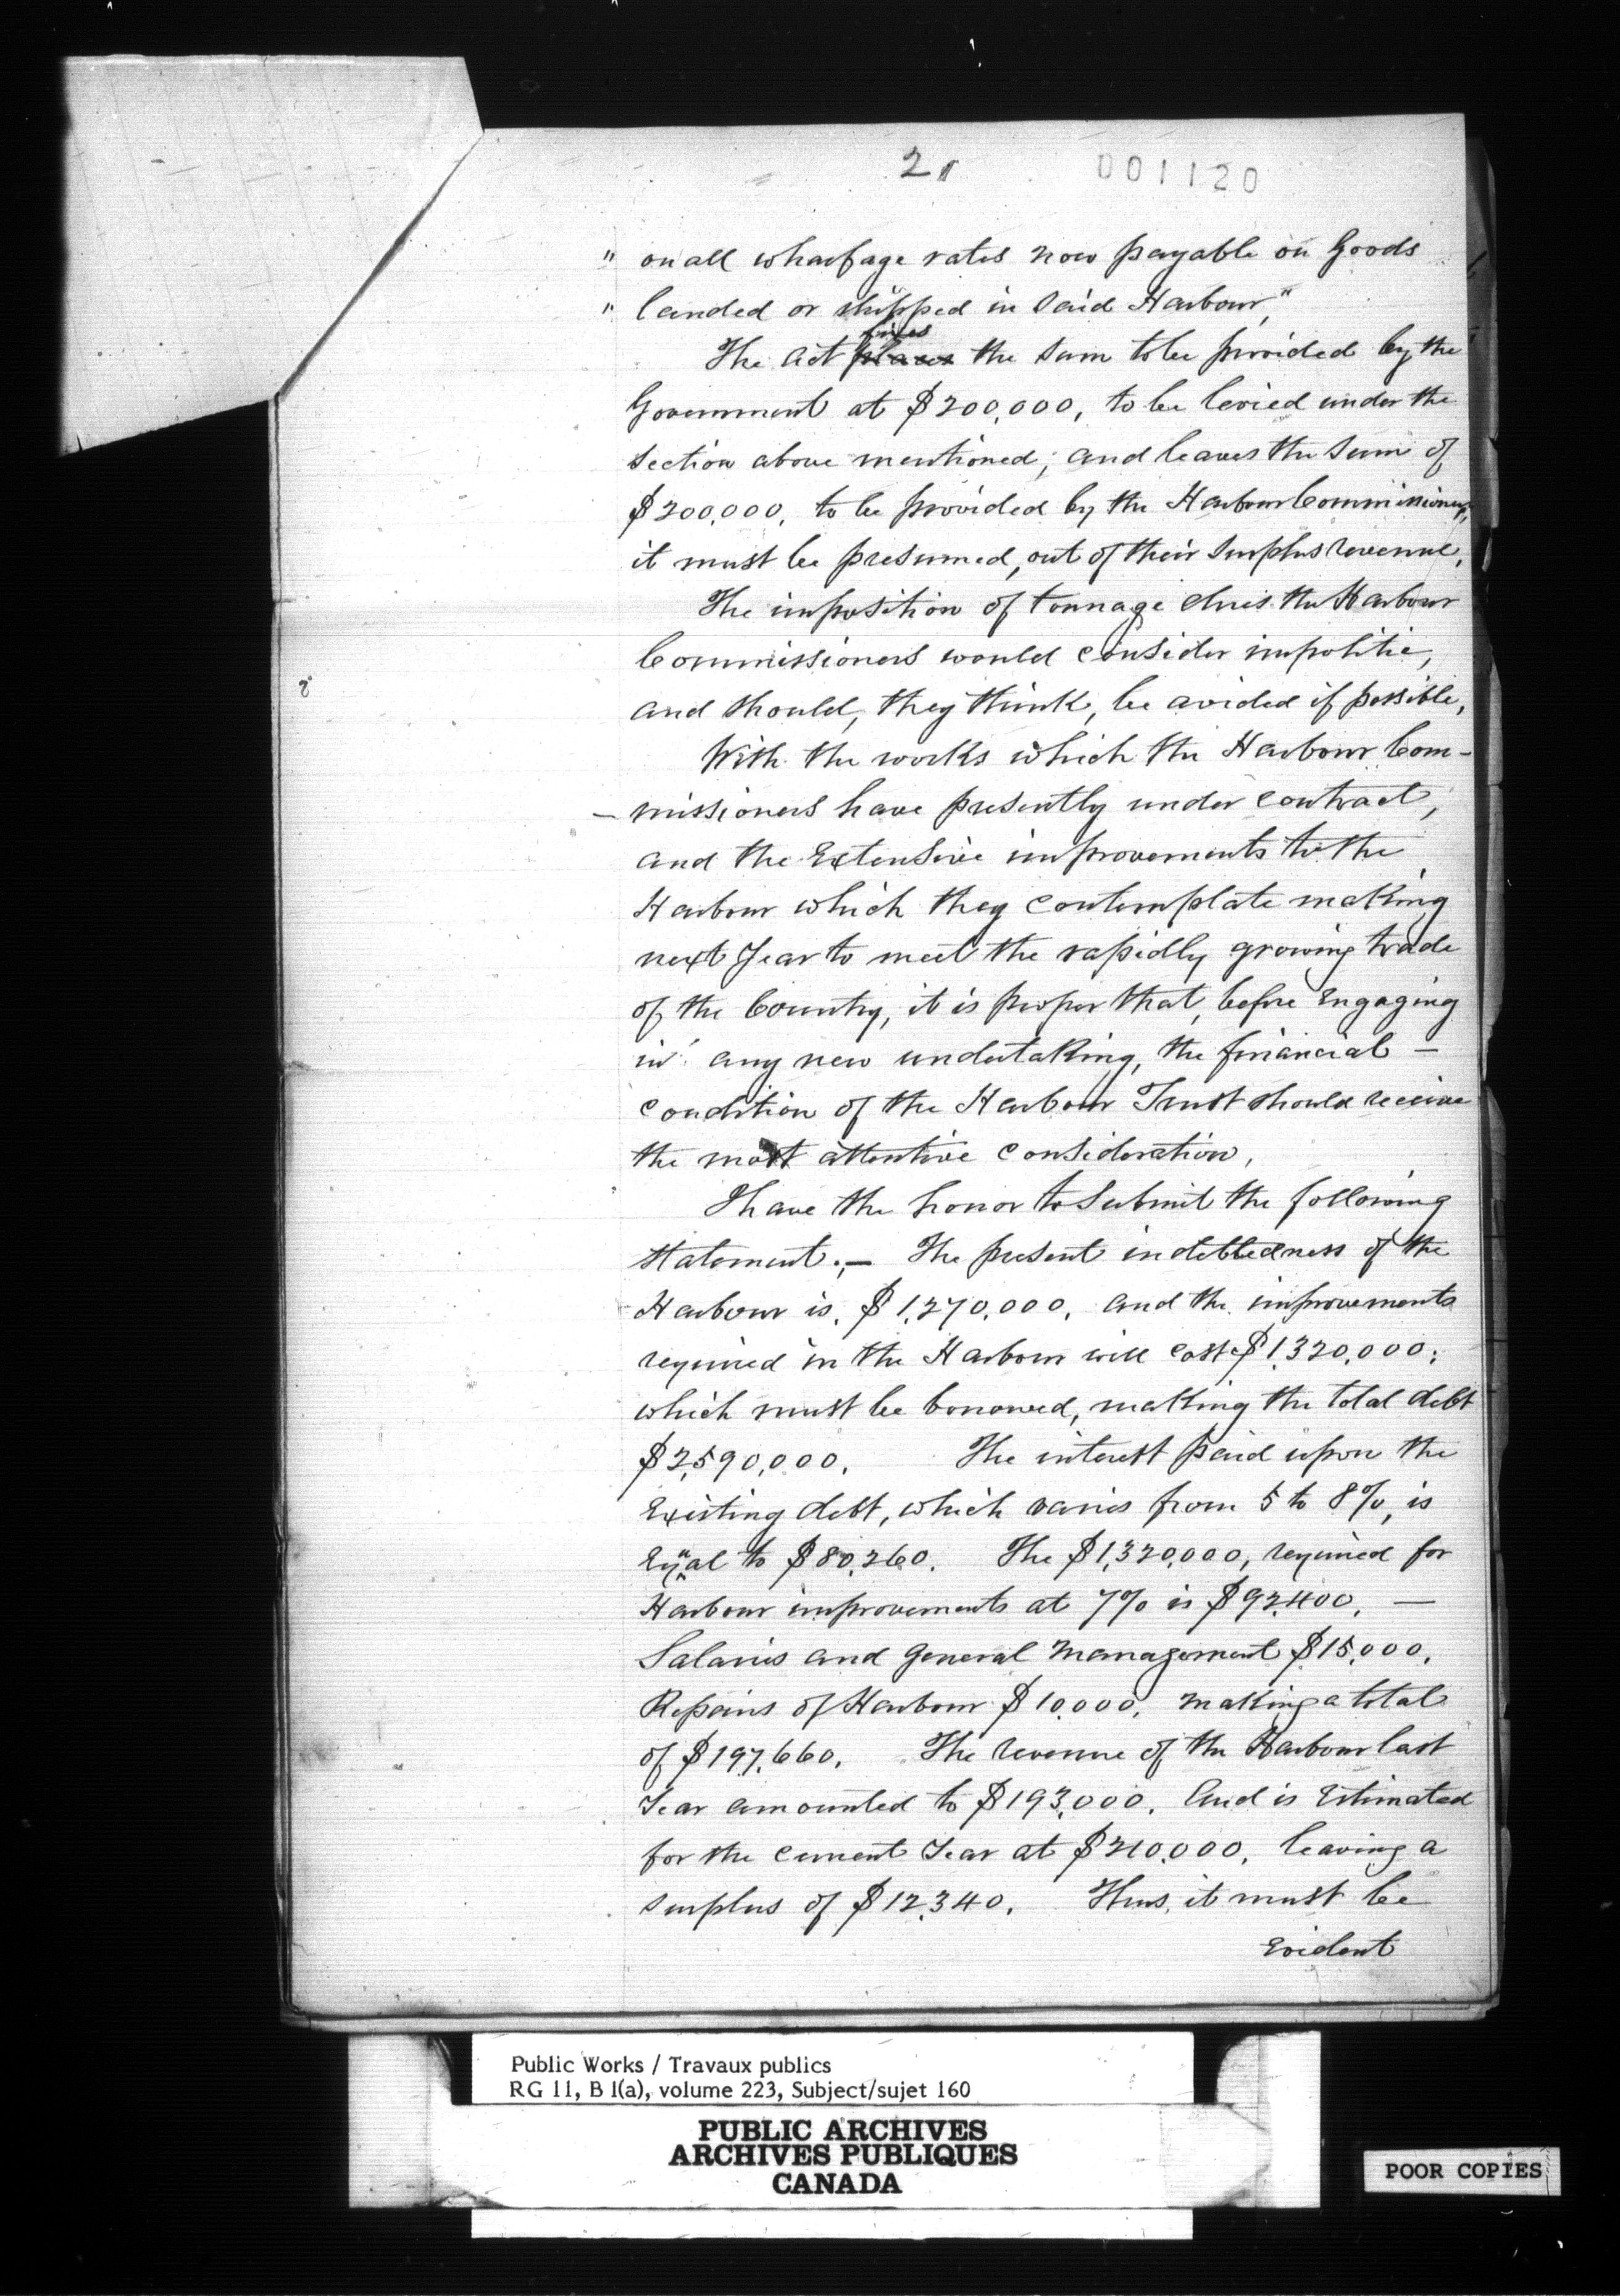 2,
001120
" on all wharfage rates now payable on Goods
" landed or shipped in said Harbour,"
fixes
The Act places the sum to be provided by the
Government at $200,000, to be levied under the
section above mentioned; and leaves the sum of
$200,000, to be provided by the Harbour Commissioners,
it must be presumed, out of their surplus revenue,
The imposition of tonnage dues the Harbour
Commissioners would consider impolitic,
and should, they think, be avoided if possible,
With the works which the Harbour Com-
- missioners have presently under contract,
and the Extensive improvements to the
Harbour which they contemplate making
next Year to meet the rapidly growing trade
of the Country, it is proper that, before Engaging
in any new undertaking, the financial —
condition of the Harbour Trust should receive
the most attentive consideration,
I have the honor to Submit the following
statement.,— The present indebtedness of the
Harbour is, $1,270,000, and the improvements
required in the Harbour will cost $1,320,000;
which must be borrowed, making the total debt
$2,590,000, The interest paid upon the
Existing debt, which varies from 5 to 8%, is
Equal to $80,260. The $1,320,000, required for
Harbour improvements at 7% is $92,400, —
Salaries and General Management $15,000,
Repairs of Harbour $10,000, making a total
of $197,660, The revenue of the Harbour last
Year amounted to $193,000, And is Estimated
for the current Year at $210,000, leaving a
surplus of $12,340, Thus, it must be
Evident
Public Works / Travaux publics
RG 11, B 1(a), volume 223, Subject/sujet 160
PUBLIC ARCHIVES
ARCHIVES PUBLIQUES
CANADA
POOR COPIES